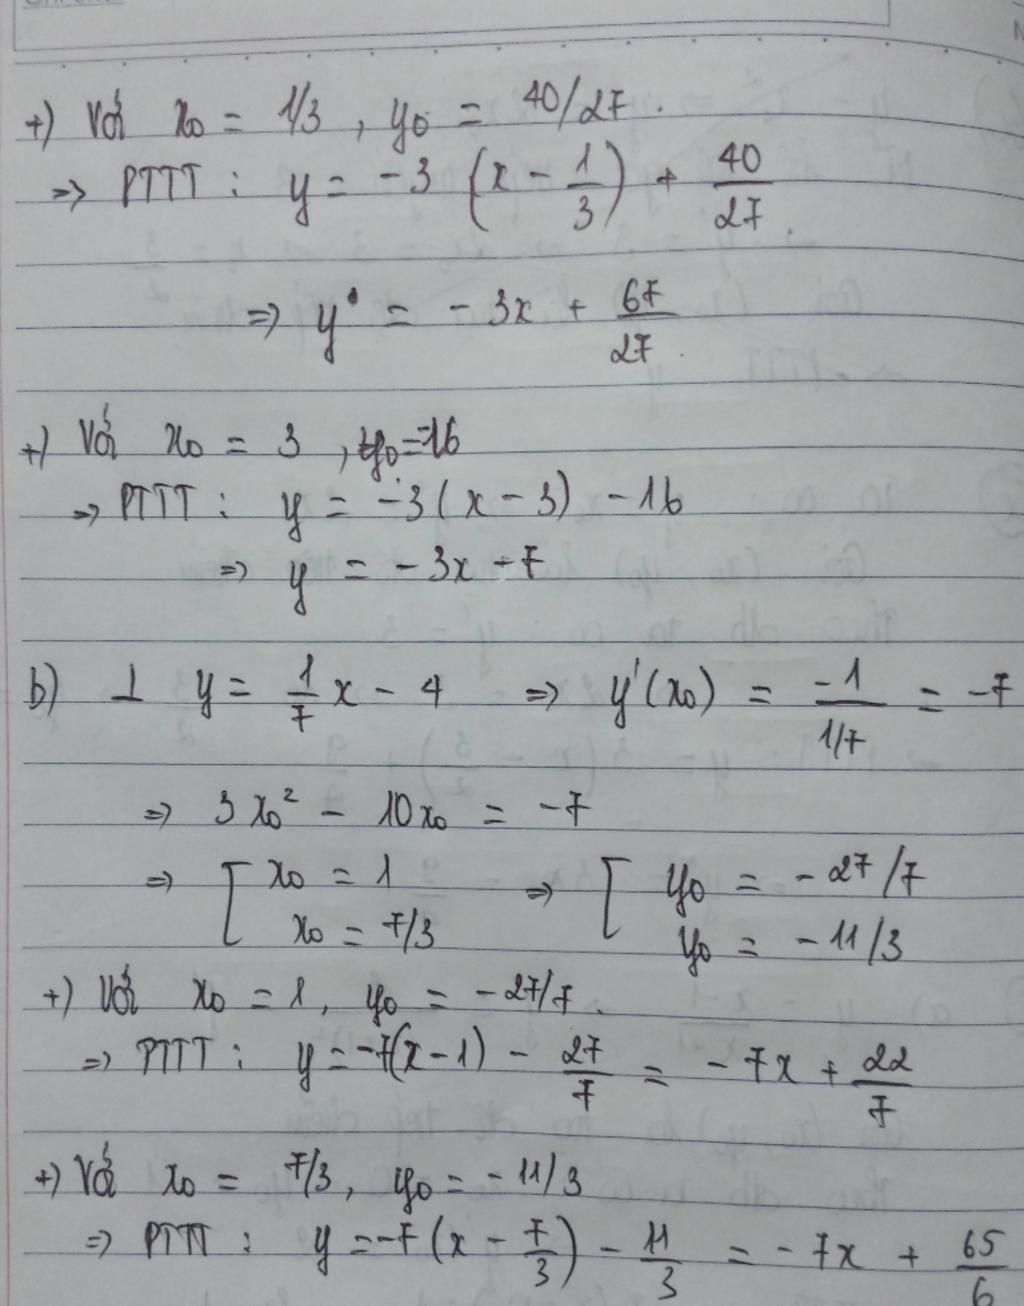 +) Với x₀ = 1/3 , y₀ = 40/27 .
=> PTTT : y = -3 (x - 1/3) + 40/27 .
=> y = - 3x + 67/27 .
+) Với x₀ = 3 , y₀ = -16
=> PTTT : y = -3(x - 3) - 16
=> y = - 3x - 7
b) ⊥ y = 1/7 x - 4 => y'(x₀) = -1/(1/7) = -7
=> 3x₀² - 10x₀ = -7
=> [ x₀ = 1 => [ y₀ = - 27/7
x₀ = 7/3 y₀ = - 11/3
+) Với x₀ = 1, y₀ = - 27/7 .
=> PTTT : y = -7(x - 1) - 27/7 = - 7x + 22/7
+) Với x₀ = 7/3, y₀ = - 11/3
=> PTTT : y = -7 (x - 7/3) - 11/3 = - 7x + 65/6